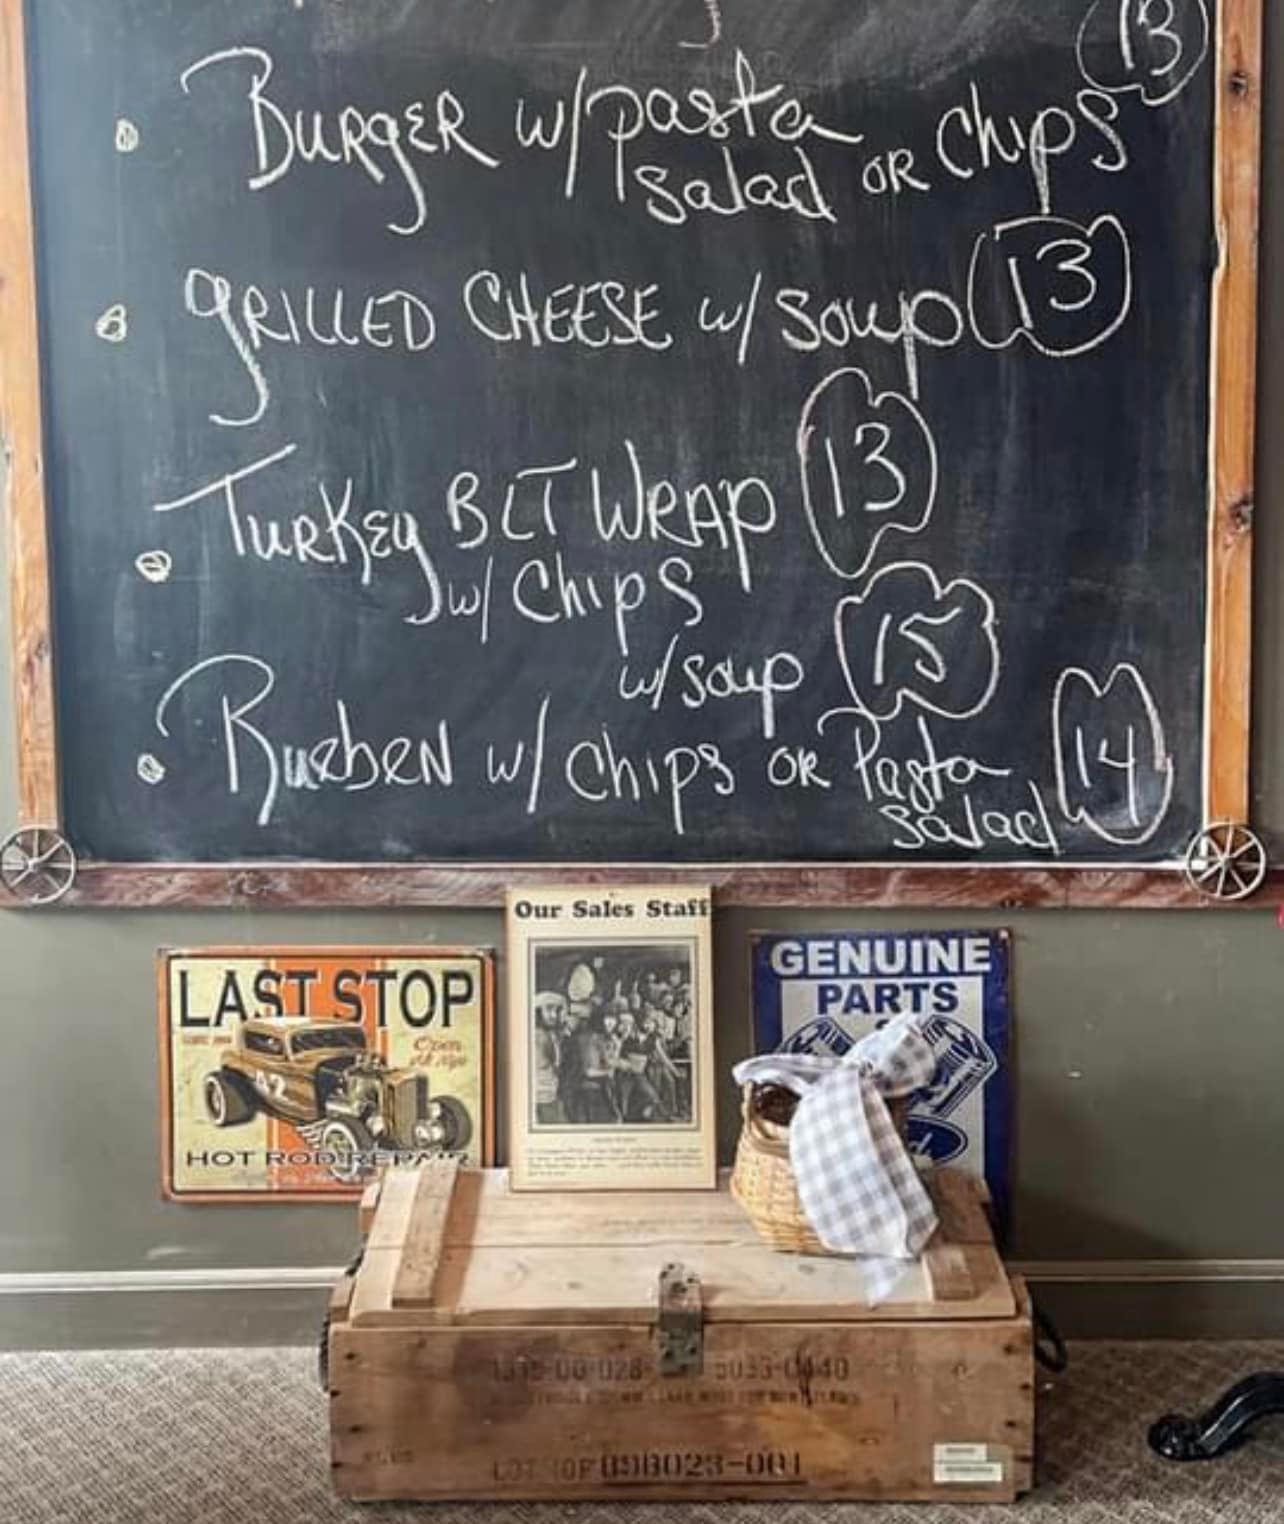 13
Burger w/ pasta
salad or chips
Grilled Cheese w/ soup 13
Turkey BLT Wrap 13
w/ Chips
w/ soup 15
Rueben w/ chips or Pasta
salad 14
Our Sales Staff
LAST STOP
Open
HOT ROD REPAIR
GENUINE
PARTS
Ford
LOT
09B023-001